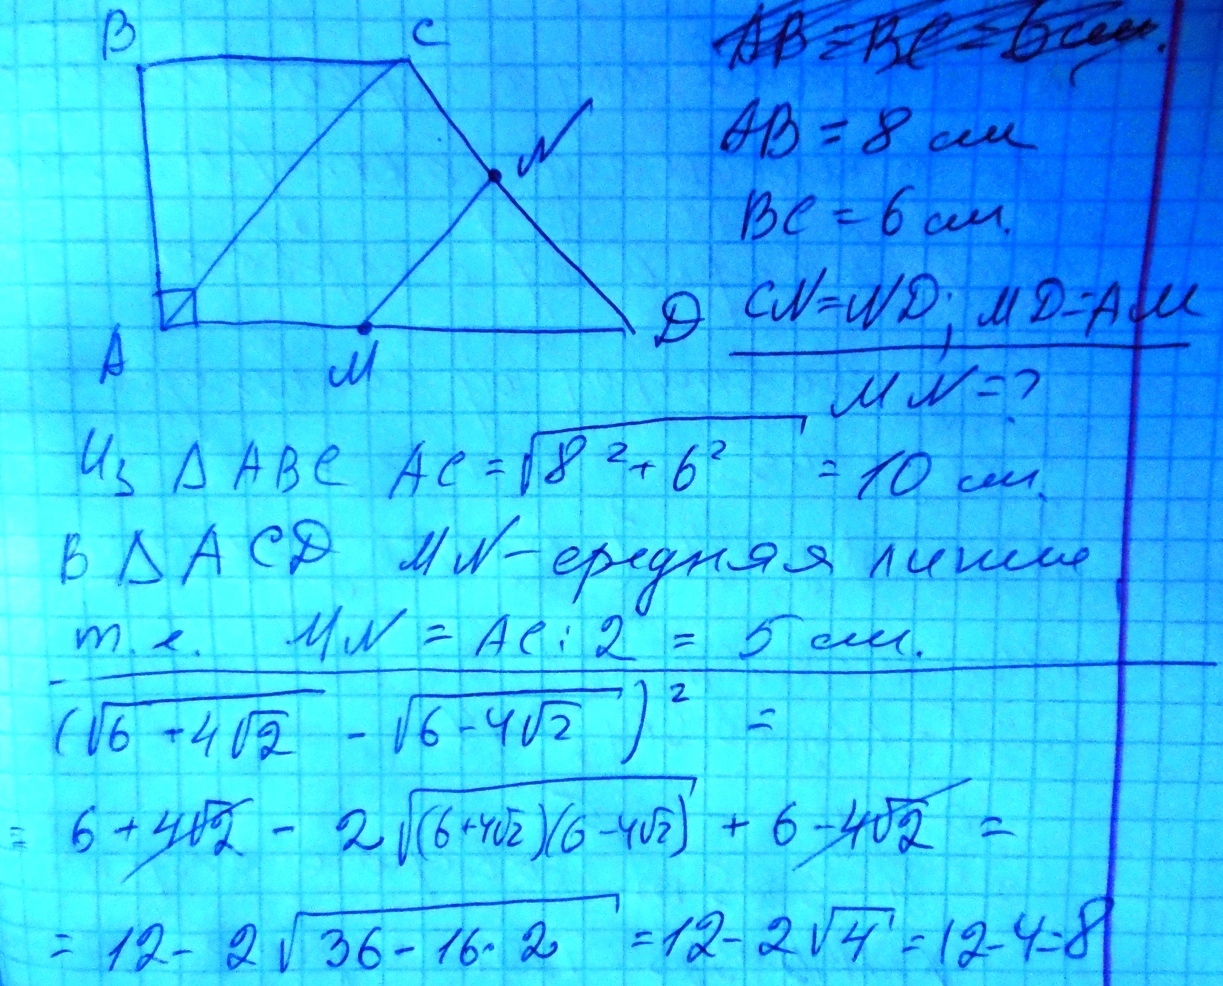 B C
AB = 8 см
BC = 6 см.
N
A M D
CN=ND; MD=AM
MN=?
Из ΔABC AC = √(8²+6²) = 10 см.
В ΔACD MN – средняя линия
т.е. MN = AC:2 = 5 см.
(√(6+4√2) - √(6-4√2))² =
= 6+4√2 - 2√((6+4√2)(6-4√2)) + 6-4√2 =
= 12 - 2√(36-16·2) = 12-2√4 = 12-4=8